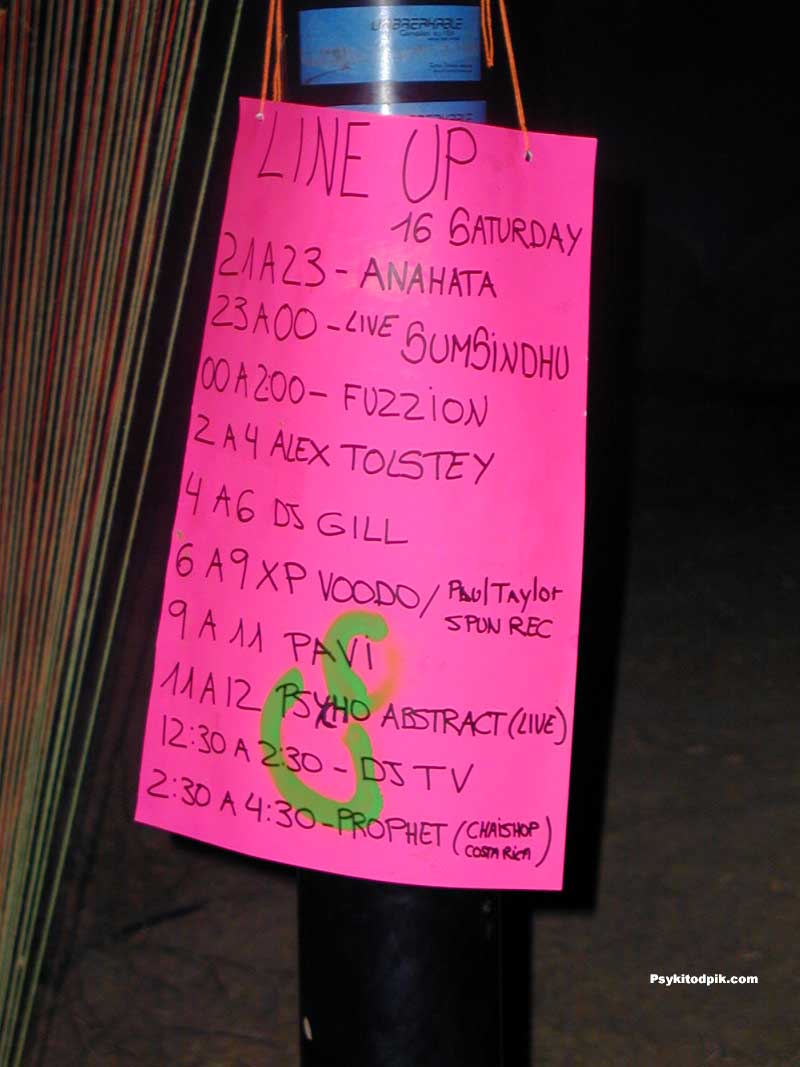 UNBREAKABLE
LINE UP
16 SATURDAY
21 A 23 - ANAHATA
23 A 00 - LIVE SUMSINDHU
00 A 2:00 - FUZZION
2 A 4 ALEX TOLSTEY
4 A 6 DJ GILL
6 A 9 XP VOODO / Paul Taylor
SPUN REC
9 A 11 PAVI
11 A 12 PSYCHO ABSTRACT (LIVE)
12:30 A 2:30 - DJ TV
2:30 A 4:30 - PROPHET (CHAISHOP
COSTA RICA)
Psykitodpik.com